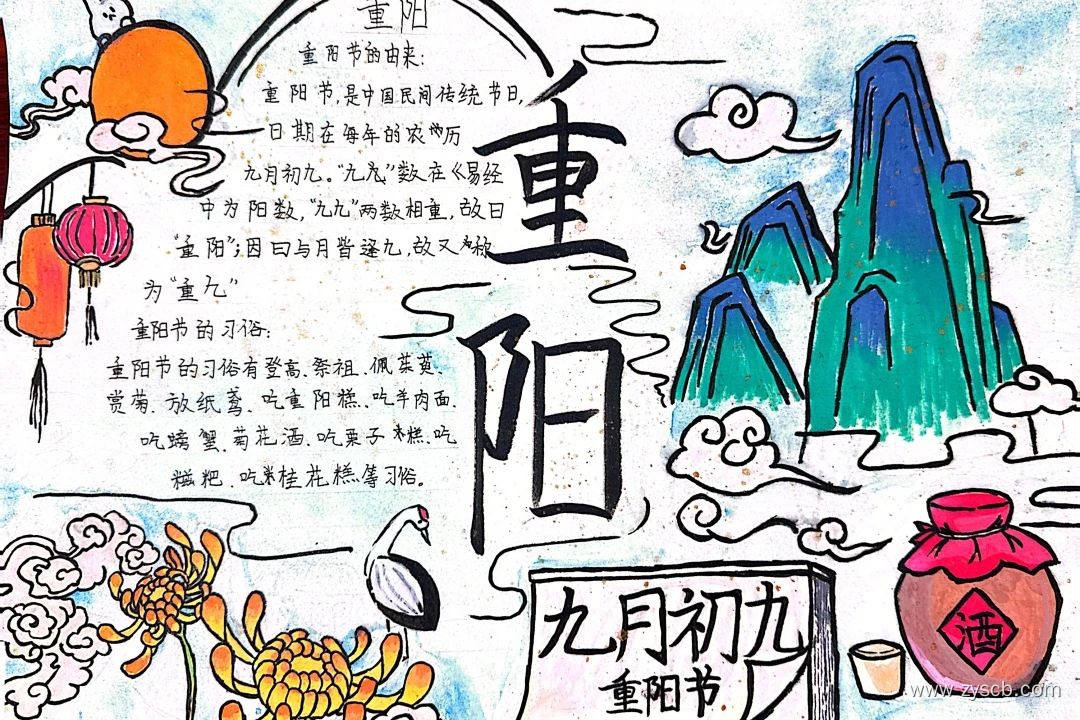 重阳
重阳节的由来:
重阳节,是中国民间传统节日,
日期在每年的农历
九月初九。“九九”数在《易经
中为阳数,“九九”两数相重,故曰
“重阳”;因日与月皆逢九,故又称
为“重九”
重阳节的习俗:
重阳节的习俗有登高、祭祖、佩茱萸、
赏菊、放纸鸢、吃重阳糕、吃羊肉面、
吃螃蟹、菊花酒、吃栗子糕、吃
糍粑、吃桂花糕等习俗。
重阳
九月初九
重阳节
酒
www.zyscb.com